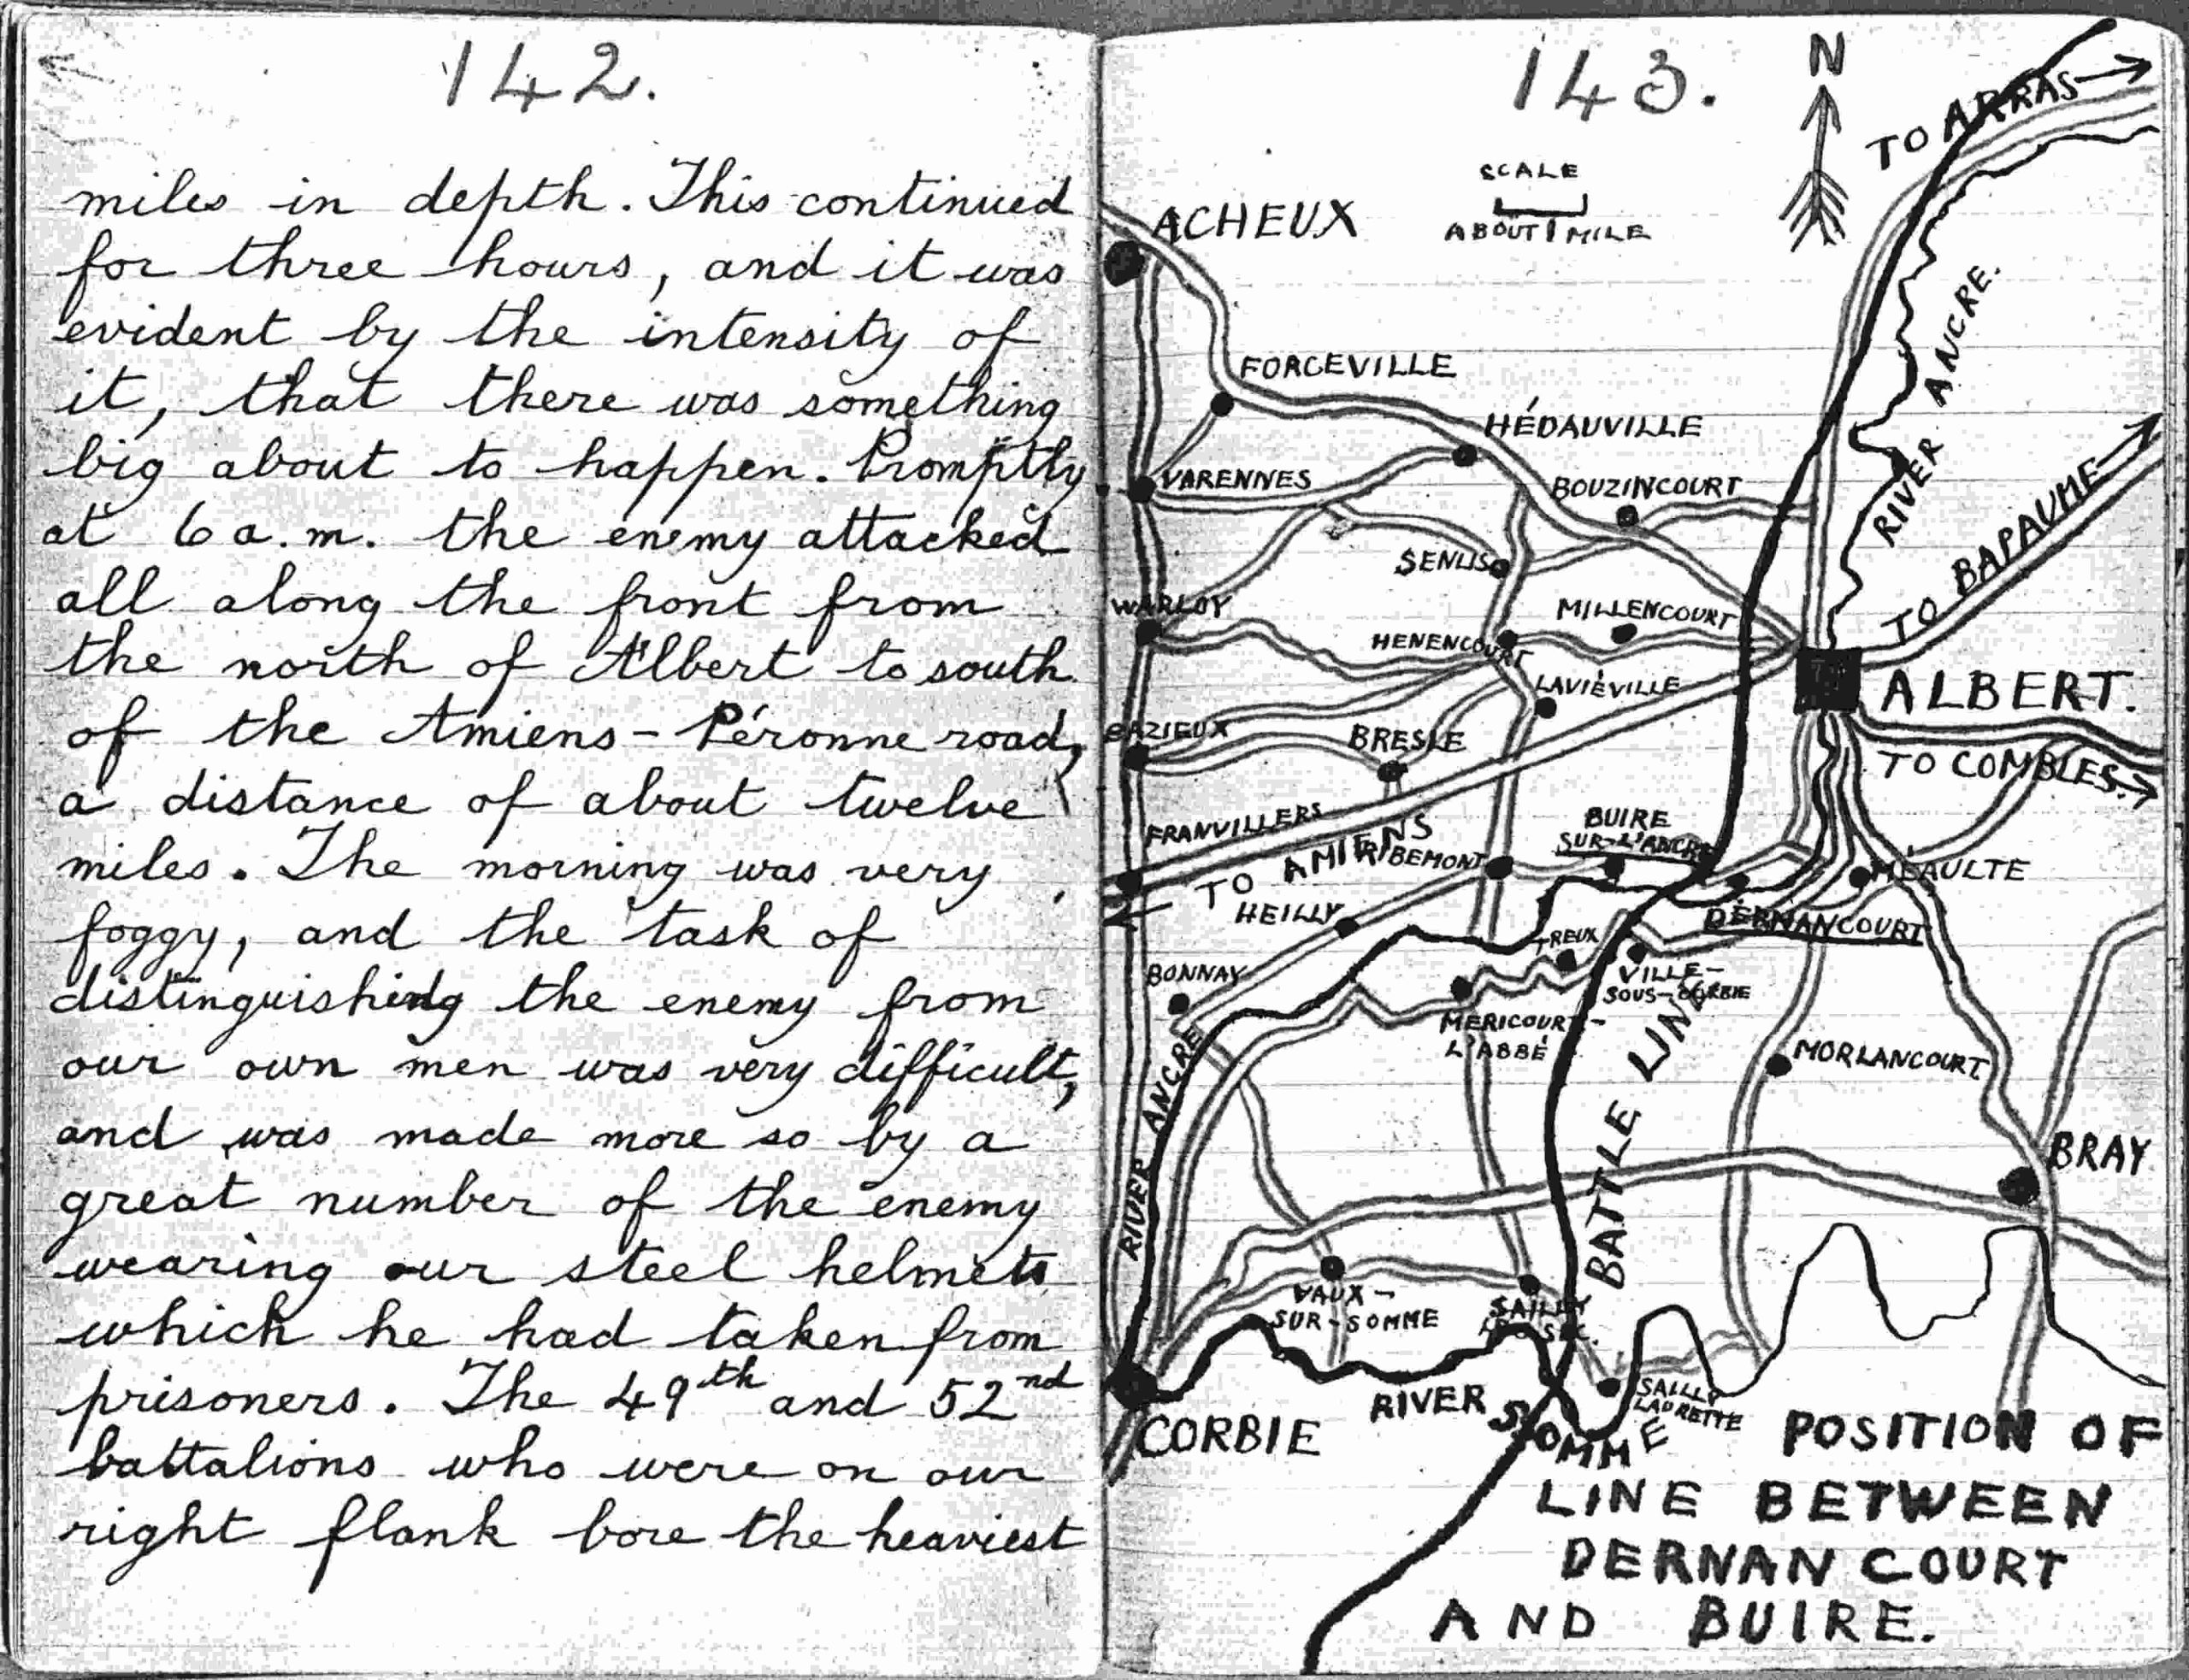 142.
miles in depth. This continued
for three hours, and it was
evident by the intensity of
it, that there was something
big about to happen. Promptly
at 6 a.m. the enemy attacked
all along the front from
the north of Albert to south
of the Amiens-Péronne road,
a distance of about twelve
miles. The morning was very
foggy, and the task of
distinguishing the enemy from
our own men was very difficult,
and was made more so by a
great number of the enemy
wearing our steel helmets
which he had taken from
prisoners. The 49th and 52nd
battalions who were on our
right flank bore the heaviest
143.
N
TO ARRAS
SCALE
ABOUT 1 MILE
ACHEUX
RIVER ANCRE.
FORCEVILLE
HÉDAUVILLE
VARENNES
BOUZINCOURT
TO BAPAUME
SENLIS
WARLOY
MILLENCOURT
HENENCOURT
LAVIÉVILLE
ALBERT.
BAZIEUX
BRESLE
TO COMBLES.
FRANVILLERS
TO AMIENS
RIBEMONT
BUIRE
SUR-L'ANCRE
MÉAULTE
HEILLY
DERNANCOURT
TREUX
BONNAY
VILLE-
SOUS-CORBIE
MERICOURT-
L'ABBÉ
BATTLE LINE
MORLANCOURT
RIVER ANCRE
BRAY
VAUX-
SUR-SOMME
SAILLY
LE SEC.
SAILLY
LAURETTE
RIVER SOMME
CORBIE
POSITION OF
LINE BETWEEN
DERNANCOURT
AND BUIRE.